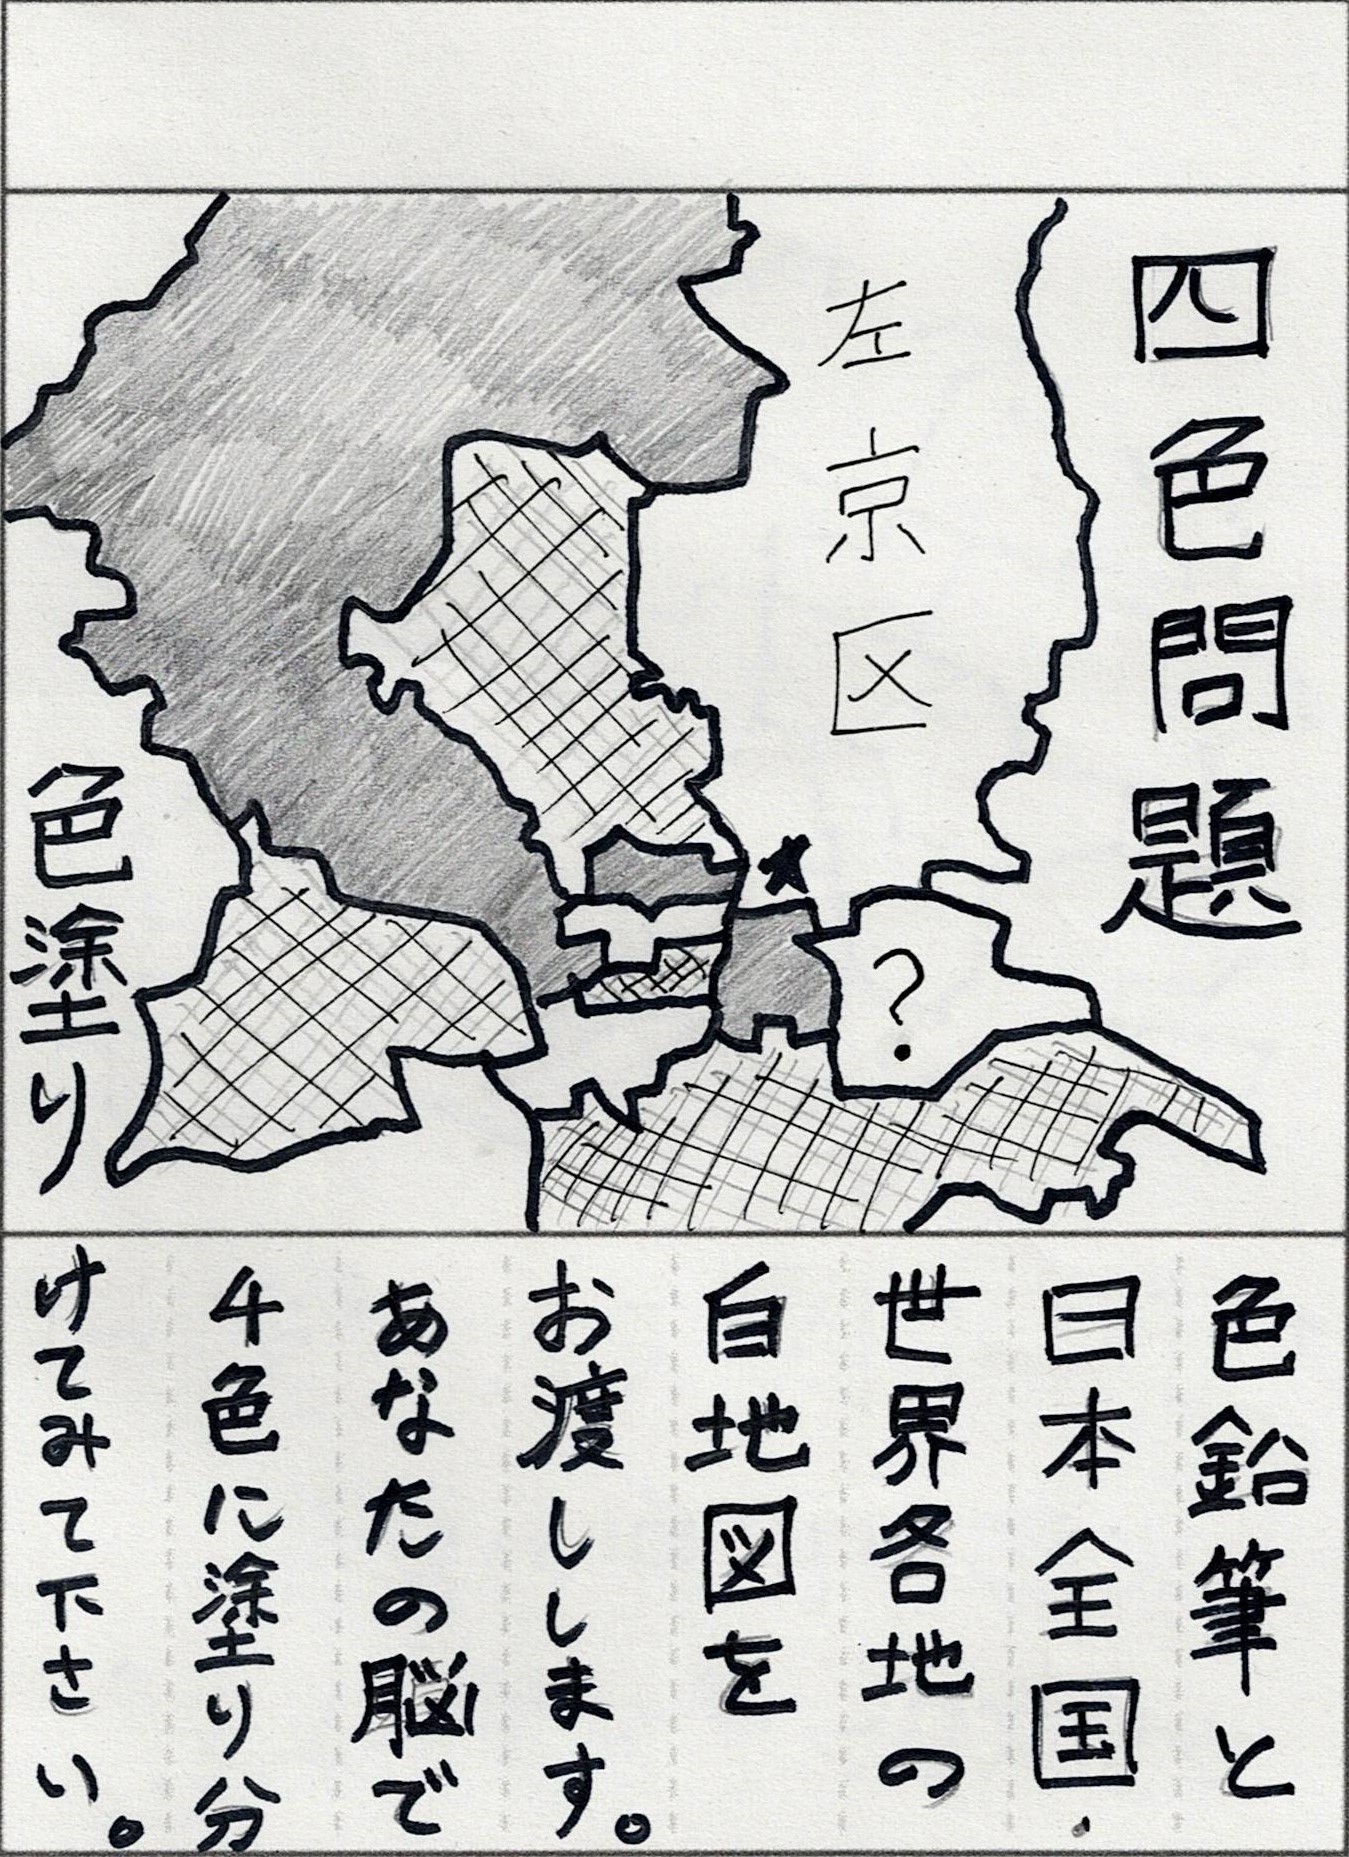 四色問題
左京区
?
色塗り
色鉛筆と
日本全国・
世界各地の
白地図を
お渡しします。
あなたの脳で
4色に塗り分
けてみて下さい。